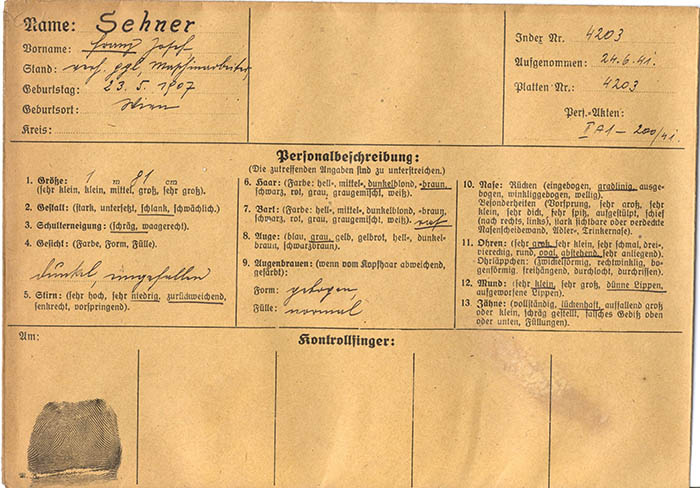 Name: Sehner
Vorname: Franz Josef
Stand: verh. ggl, Maschinarbeiter,
Geburtstag: 23. 5. 1907
Geburtsort: Wien
Kreis:
Index Nr. 4203
Aufgenommen: 24.6.41.
Platten Nr.: 4203
Pers.-Akten:
II A1 - 200/41.
Personalbeschreibung:
(Die zutreffenden Angaben sind zu unterstreichen.)
1. Größe: 1 m 81 cm
(sehr klein, klein, mittel, groß, sehr groß).
2. Gestalt: (stark, untersetzt, schlank, schwächlich.)
3. Schulterneigung: (schräg, waagerecht).
4. Gesicht: (Farbe, Form, Fülle).
dunkel, eingefallen
5. Stirn: (sehr hoch, sehr niedrig, zurückweichend,
senkrecht, vorspringend).
6. Haar: (Farbe: hell-, mittel-, dunkelblond, -braun,
schwarz, rot, grau, graugemischt, weiß).
7. Bart: (Farbe: hell-, mittel-, dunkelblond, -braun,
schwarz, rot, grau, graugemischt, weiß)
8. Auge: (blau, grau, gelb, gelbrot, hell-, dunkel-
braun, schwarzbraun).
9. Augenbrauen: (wenn vom Kopfhaar abweichend,
gefärbt):
Form: gebogen,
Fülle: normal
10. Nase: Rücken (eingebogen, gradlinig, ausge-
bogen, winkliggebogen, wellig).
Besonderheiten (Vorsprung, sehr groß, sehr
klein, sehr dick, sehr spitz, aufgestülpt, schief
(nach rechts, links), stark sichtbare oder verdeckte
Nasenscheidewand, Adler-, Trinkernase).
11. Ohren: (sehr groß, sehr klein, sehr schmal, drei-,
viereckig, rund, oval, abstehend, sehr anliegend).
Ohrläppchen: (zwickelförmig, rechtwinklig, bo-
genförmig, freihängend, durchlocht, durchrissen).
12. Mund: (sehr klein, sehr groß, dünne Lippen,
aufgeworsene Lippen).
13. Zähne: (vollständig, lückenhaft, auffallend groß
oder klein, schräg gestellt, falsches Gebiß oben
oder unten, Füllungen).
Am:
Kontrollfinger: